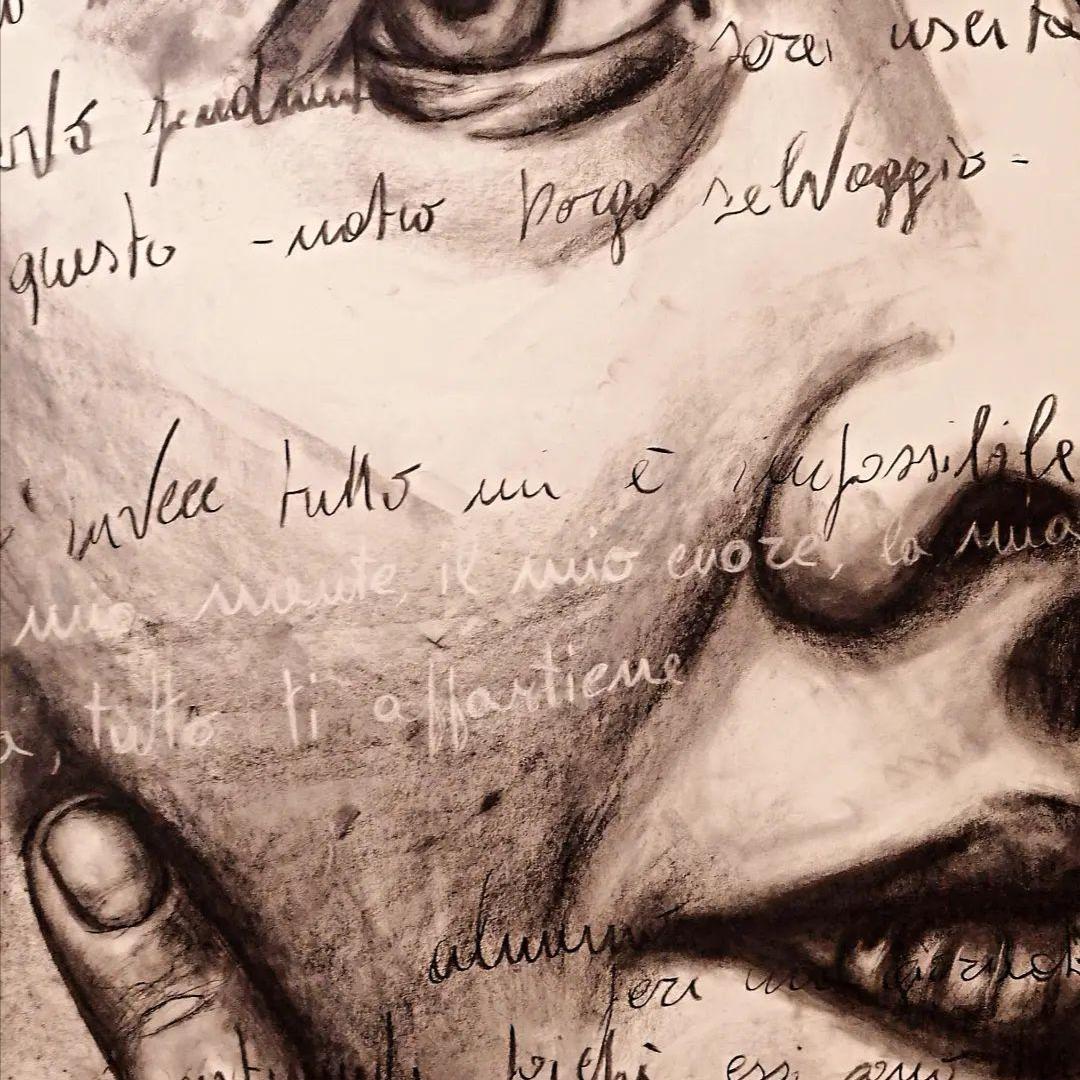 sarei uscita
questo - natio borgo selvaggio -
invece tutto mi è impossibile
mia mente, il mio cuore, la mia
a, tutto ti appartiene
almeno
per un giorno